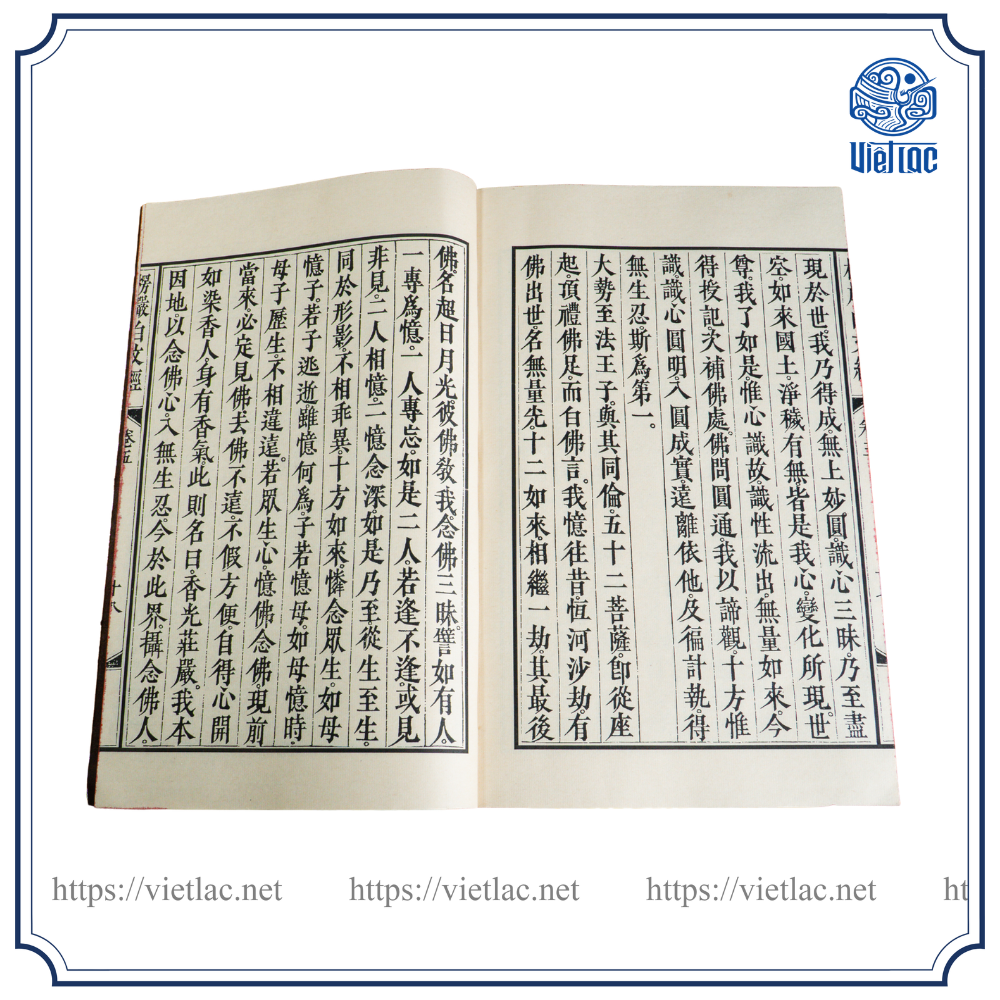 ViệtLạc
現於世。我乃得成無上妙圓。識心三昧。乃至盡
空。如來國土。淨穢有無。皆是我心。變化所現。世
尊。我了如是惟心識故。識性流出。無量如來。今
得授記。次補佛處。佛問圓通。我以諦觀。十方惟
識。識心圓明。入圓成實。遠離依他。及徧計執。得
無生忍。斯爲第一。
大勢至法王子。與其同倫。五十二菩薩。即從座
起。頂禮佛足。而白佛言。我憶往昔。恒河沙劫。有
佛出世。名無量光。十二如來。相繼一劫。其最後
佛。名超日月光。彼佛教我念佛三昧。譬如有人。
一專爲憶。一人專忘。如是二人。若逢不逢。或見
非見。二人相憶。二憶念深。如是乃至從生至生。
同於形影。不相乖異。十方如來。憐念眾生。如母
憶子。若子逃逝。雖憶何爲。子若憶母。如母憶時。
母子歷生。不相違遠。若眾生心。憶佛念佛。現前
當來。必定見佛。去佛不遠。不假方便。自得心開
如染香人。身有香氣。此則名曰。香光莊嚴。我本
因地。以念佛心。入無生忍。今於此界。攝念佛人。
楞嚴白文經 卷五 十八
https://vietlac.net https://vietlac.net https://vietlac.net ht